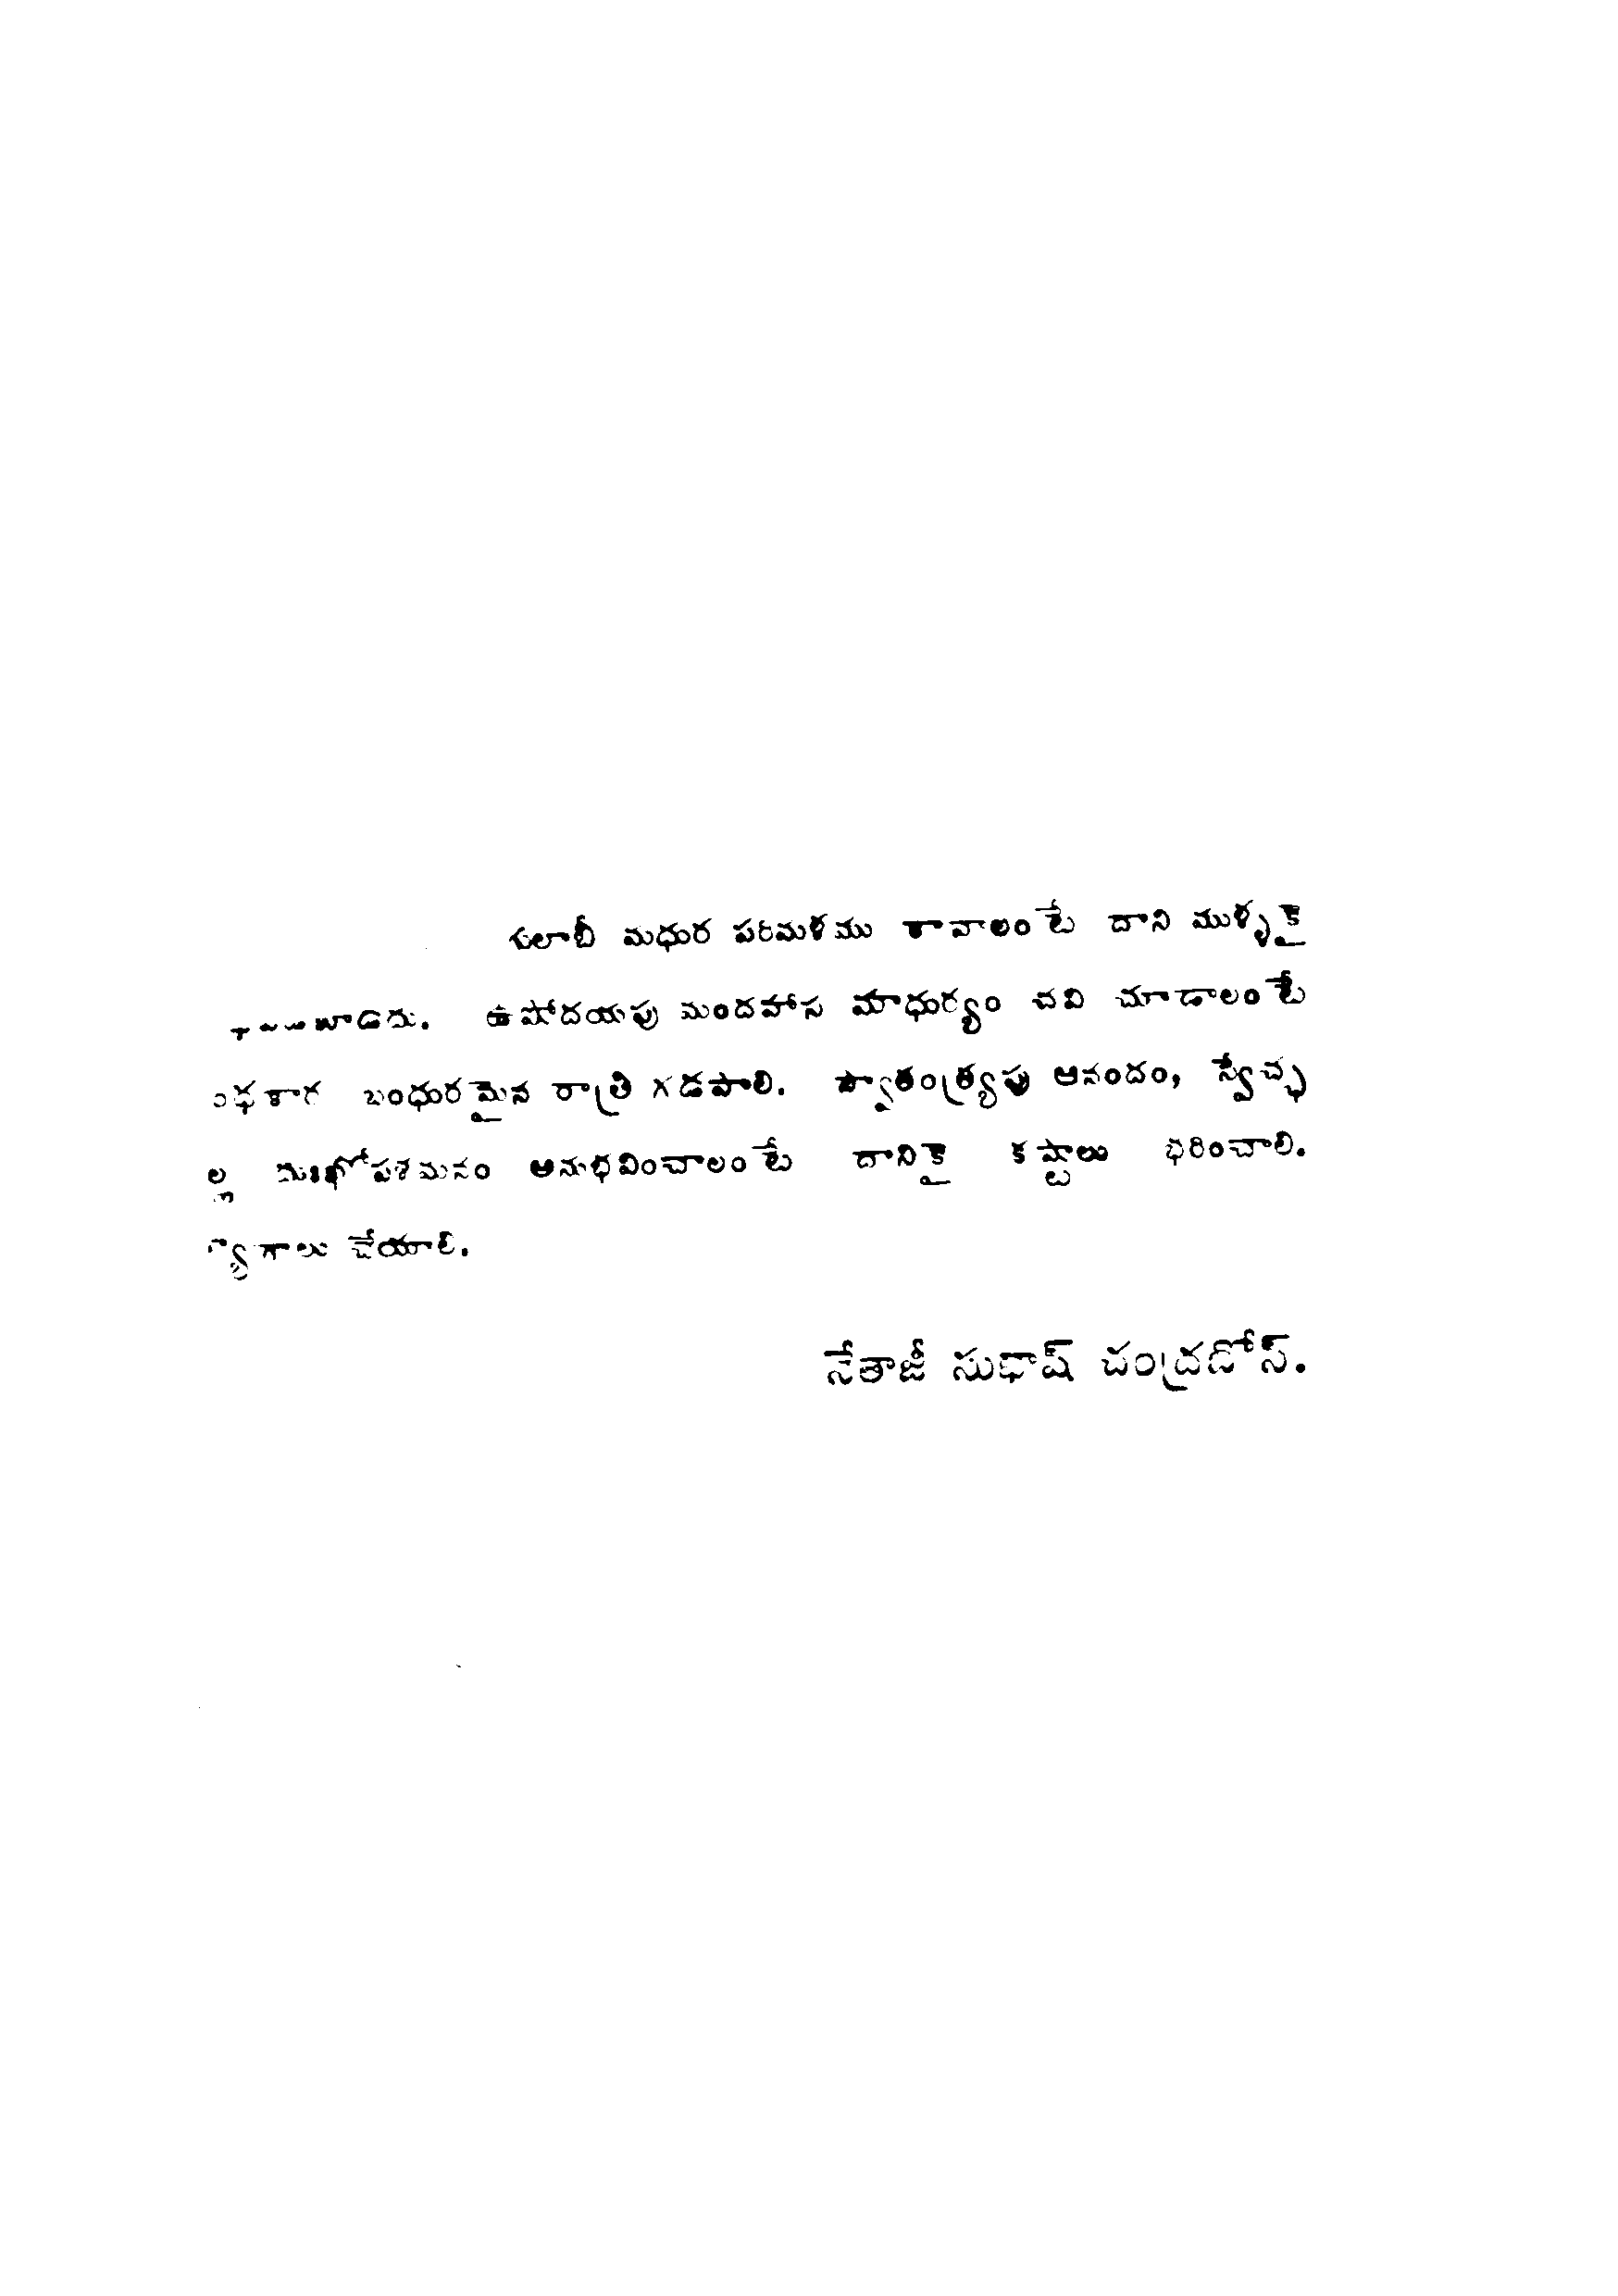 గులాబీ మధుర పరిమళము కావాలంటే దాని ముళ్ళకై
ఉషోదయపు మందహాస మాధుర్యం చవి చూడాలంటే
బంధురమైన రాత్రి గడపాలి. స్వాతంత్ర్యపు ఆనందం, స్వేచ్ఛ
దుఃఖోపశమనం అనుభవించాలంటే దానికై కష్టాలు భరించాలి.
త్యాగాలు చేయాలి.
నేతాజీ సుభాష్ చంద్రబోస్.